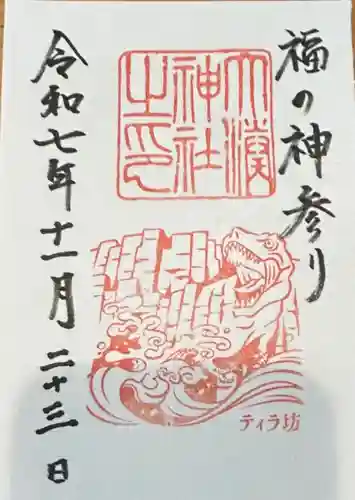 福の神参り
大濱
神社
之印
ティラ坊
令和七年十一月二十三日